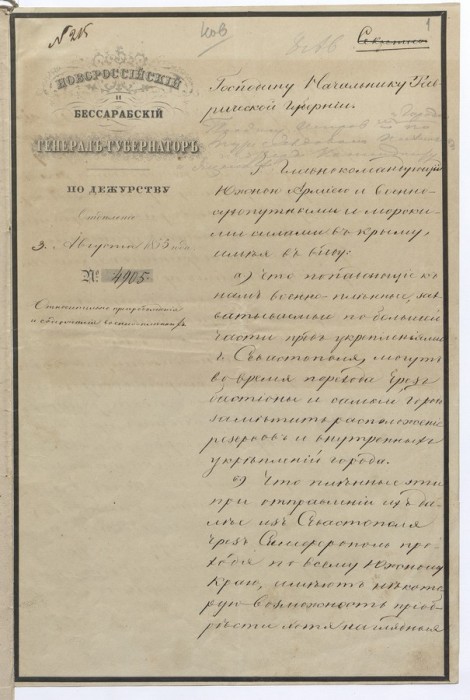 № 215
ков
1
Секретно
НОВОРОССІЙСКІЙ
И
БЕССАРАБСКІЙ
ГЕНЕРАЛЪ-ГУБЕРНАТОРЪ
ПО ДЕЖУРСТВУ
3. Августа 1855 года
№ 4905.
Относительно
и военнопленныхъ
Господину Начальнику Тав-
рической Губерніи.
Г. Главнокомандующій
Южною Арміею и военно-
сухопутными и морски-
ми силами въ Крыму,
имѣя въ виду:
а) Что попадающіе къ
намъ военно-плѣнные, зах-
ватываемые по большей
части предъ укрѣпленіями
Севастополя, могутъ
во время перехода чрезъ
бастіоны и самый городъ
замѣтить расположеніе
резервовъ и внутреннихъ
укрѣпленій города.
б) Что плѣнные эти
при отправленіи ихъ да-
лѣе изъ Севастополя
чрезъ Симферополь про-
ходя по всему Южному
Краю, имѣютъ нѣкото-
рую возможность пріоб-
рѣсти хотя наглядныя